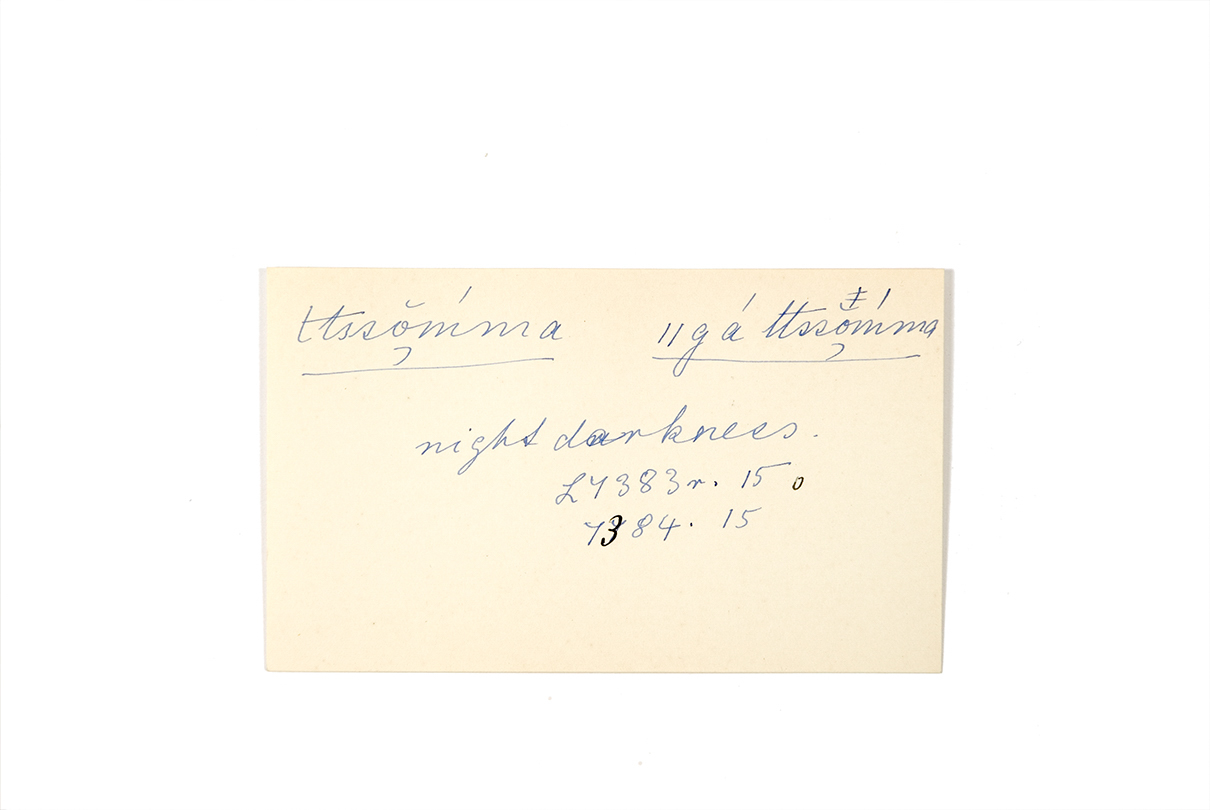 ttssŏ̦ḿma ǁgá ttssŏ̦ḿma
night darkness.
L7383r. 15 o
7384. 15